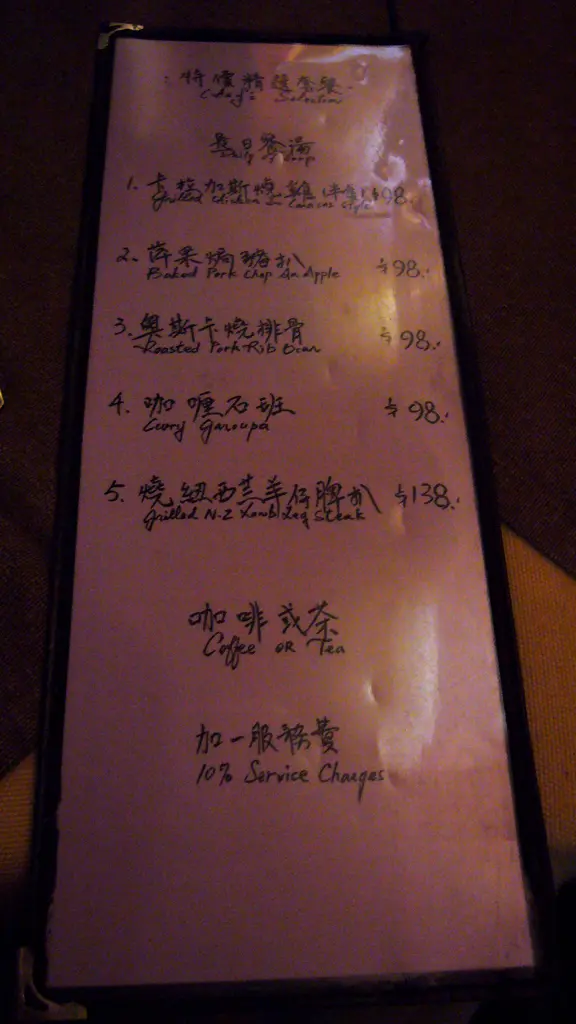 特價精選套餐
Today's Selection
是日餐湯
Daily Soup
1. 卡拉加斯燒雞(半隻) $98.
Grilled Chicken in Caracas Style
2. 苹果焗豬扒 $98.
Baked Pork Chop An Apple
3. 奧斯卡燒排骨 $98.
Roasted Pork Rib
4. 咖喱石班 $98.
Curry Garoupa
5. 燒紐西兰羊仔脾扒 $138.
Grilled N.Z Lamb Leg Steak
咖啡或茶
Coffee OR Tea
加一服務費
10% Service Charges